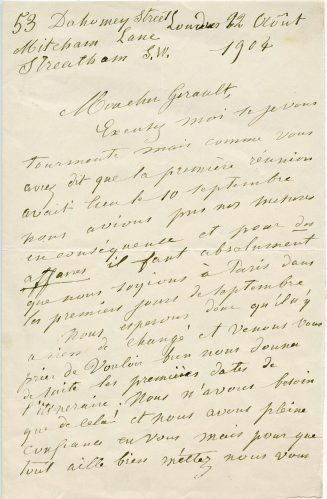 53 Dahomey Street Londres 22 Août
Mitcham Lane
Streatham S.W. 1904
Mon cher Gerault,
Excusez moi si je vous
tourmente mais comme vous
avez dit que la première réunion
avait lieu le 10 septembre
nous avions pris nos mesures
en conséquence et pour des
affaires il faut absolument
que nous soyions à Paris dans
les premiers jours de septembre
Nous esperons donc qu'il n'y
a rien de changé et venons vous
prier de vouloir bien nous donner
de suite les premières dates de
l'itineraire. Nous n'avons besoin
que de cela! et nous avons pleine
confiance en vous mais pour que
tout aille bien mettez nous vous